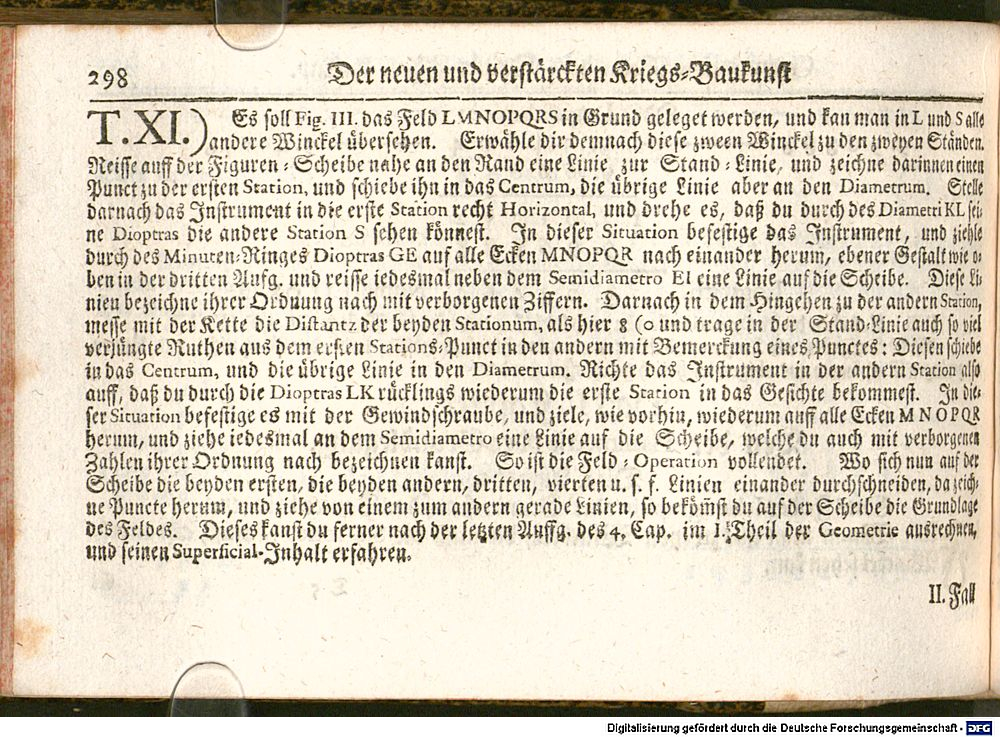 298 Der neuen und verstärckten Kriegs-Baukunst
T. XI.) Es soll Fig. III. das Feld LMNOPQRS in Grund geleget werden, und kan man in L und S alle
andere Winckel übersehen. Erwähle dir demnach diese zween Winckel zu den zweyen Ständen.
Reisse auff der Figuren-Scheibe nahe an den Rand eine Linie zur Stand-Linie, und zeichne darinnen einen
Punct zu der ersten Station, und schiebe ihn in das Centrum, die übrige Linie aber an den Diametrum. Stelle
darnach das Instrument in die erste Station recht Horizontal, und drehe es, daß du durch des Diametri KL sei-
ne Dioptras die andere Station S sehen könnest. In dieser Situation befestige das Instrument, und ziehle
durch des Minuten-Ringes Dioptras GE auf alle Ecken MNOPQR nach einander herum, ebener Gestalt wie o-
ben in der dritten Aufg. und reisse iedesmal neben dem Semidiametro EI eine Linie auf die Scheibe. Diese Li-
nien bezeichne ihrer Ordnung nach mit verborgenen Ziffern. Darnach in dem Hingehen zu der andern Station,
messe mit der Kette die Distantz der beyden Stationum, als hier 8 (0 und trage in der Stand-Linie auch so viel
verjüngte Ruthen aus dem ersten Stations-Punct in den andern mit Bemerckung eines Punctes: Diesen schiebe
in das Centrum, und die übrige Linie in den Diametrum. Richte das Instrument in der andern Station also
auff, daß du durch die Dioptras LK rücklings wiederum die erste Station in das Gesichte bekommest. In die-
ser Situation befestige es mit der Gewindschraube, und ziele, wie vorhin, wiederum auff alle Ecken MNOPQR
herum, und ziehe iedesmal an dem Semidiametro eine Linie auf die Scheibe, welche du auch mit verborgenen
Zahlen ihrer Ordnung nach bezeichnen kanst. So ist die Feld-Operation vollendet. Wo sich nun auf der
Scheibe die beyden ersten, die beyden andern, dritten, vierten u. s. f. Linien einander durchschneiden, da zeich-
ne Puncte herum, und ziehe von einem zum andern gerade Linien, so beköm̃st du auf der Scheibe die Grundlage
des Feldes. Dieses kanst du ferner nach der letzten Auffg. des 4. Cap. im I. Theil der Geometrie ausrechnen,
und seinen Superficial-Inhalt erfahren.
II. Fall
Digitalisierung gefördert durch die Deutsche Forschungsgemeinschaft - DFG